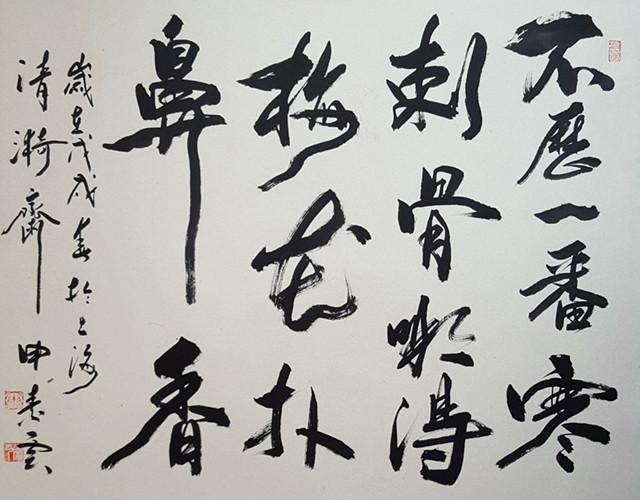 不歷一番寒
刺骨哪得
梅花扑
鼻香
歲在戊戌春於上海
清漪齋 申雲